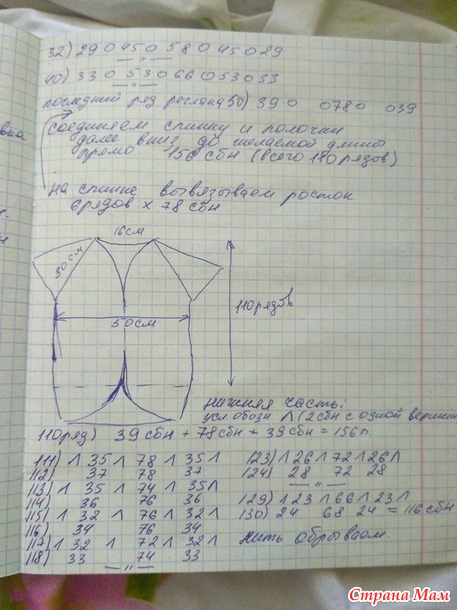 32) 29 0 45 0 58 0 45 0 29
— „ —
40) 33 0 53 0 66 0 53 0 33
— „ —
последний ряд реглана 50) 39 0 0 78 0 0 39
Соединяем спинку и полочки
далее вниз до желаемой длины
прямо 156 сбн (всего 110 рядов)
на спинке вывязываем росток
6 рядов х 78 сбн
16 см
30 см
110 рядов
50 см
нижняя часть:
усл обозн Λ (2 сбн с одной вершин
110 ряд) 39 сбн + 78 сбн + 39 сбн = 156 п.
111) Λ 35 Λ 78 Λ 35 Λ
112) 37 78 37
113) Λ 35 Λ 74 Λ 35 Λ
114) 36 76 36
115) Λ 32 Λ 76 Λ 32 Λ
116) 34 76 34
117) Λ 32 Λ 72 Λ 32 Λ
118) 33 74 33
— „ —
123) Λ 26 Λ 72 Λ 26 Λ
124) 28 72 28
— „ —
129) Λ 23 Λ 66 Λ 23 Λ
130) 24 68 24 = 116 сбн
Нить обрываем.
Страна Мам